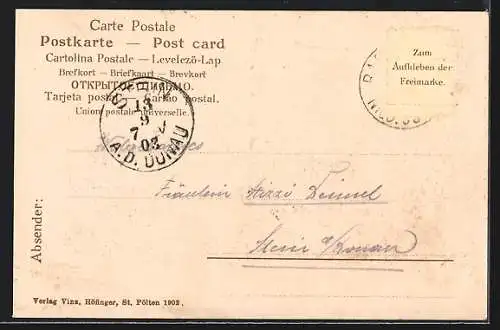 Carte Postale
Postkarte — Post card
Cartolina Postale — Levelező-Lap
Brefkort — Briefkaart — Brevkort
ОТКРЫТОЕ ПИСЬМО.
Tarjeta postal
Union postale universelle.
Zum
Aufkleben der
Freimarke.
STEIN
13
9
7 V
02
A.D. DONAU
Fräulein
Stein a/Donau
Absender:
Verlag Vinz. Höfinger, St. Pölten 1902.